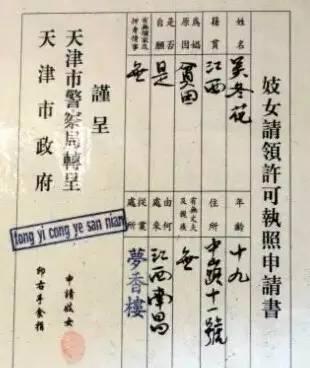 妓女請領許可執照申請書
姓名
吴冬花
年齡
十九
籍貫
江西
住所
中山路十一號
為娼原因
貧困
有無丈夫及親族
無
是否自願
是
由何處來
江西南昌
有無領家及押身情事
無
從業處所
夢香樓
謹呈
天津市警察局轉呈
天津市政府
tong yi cong ye san nian
申請妓女
印右手食指